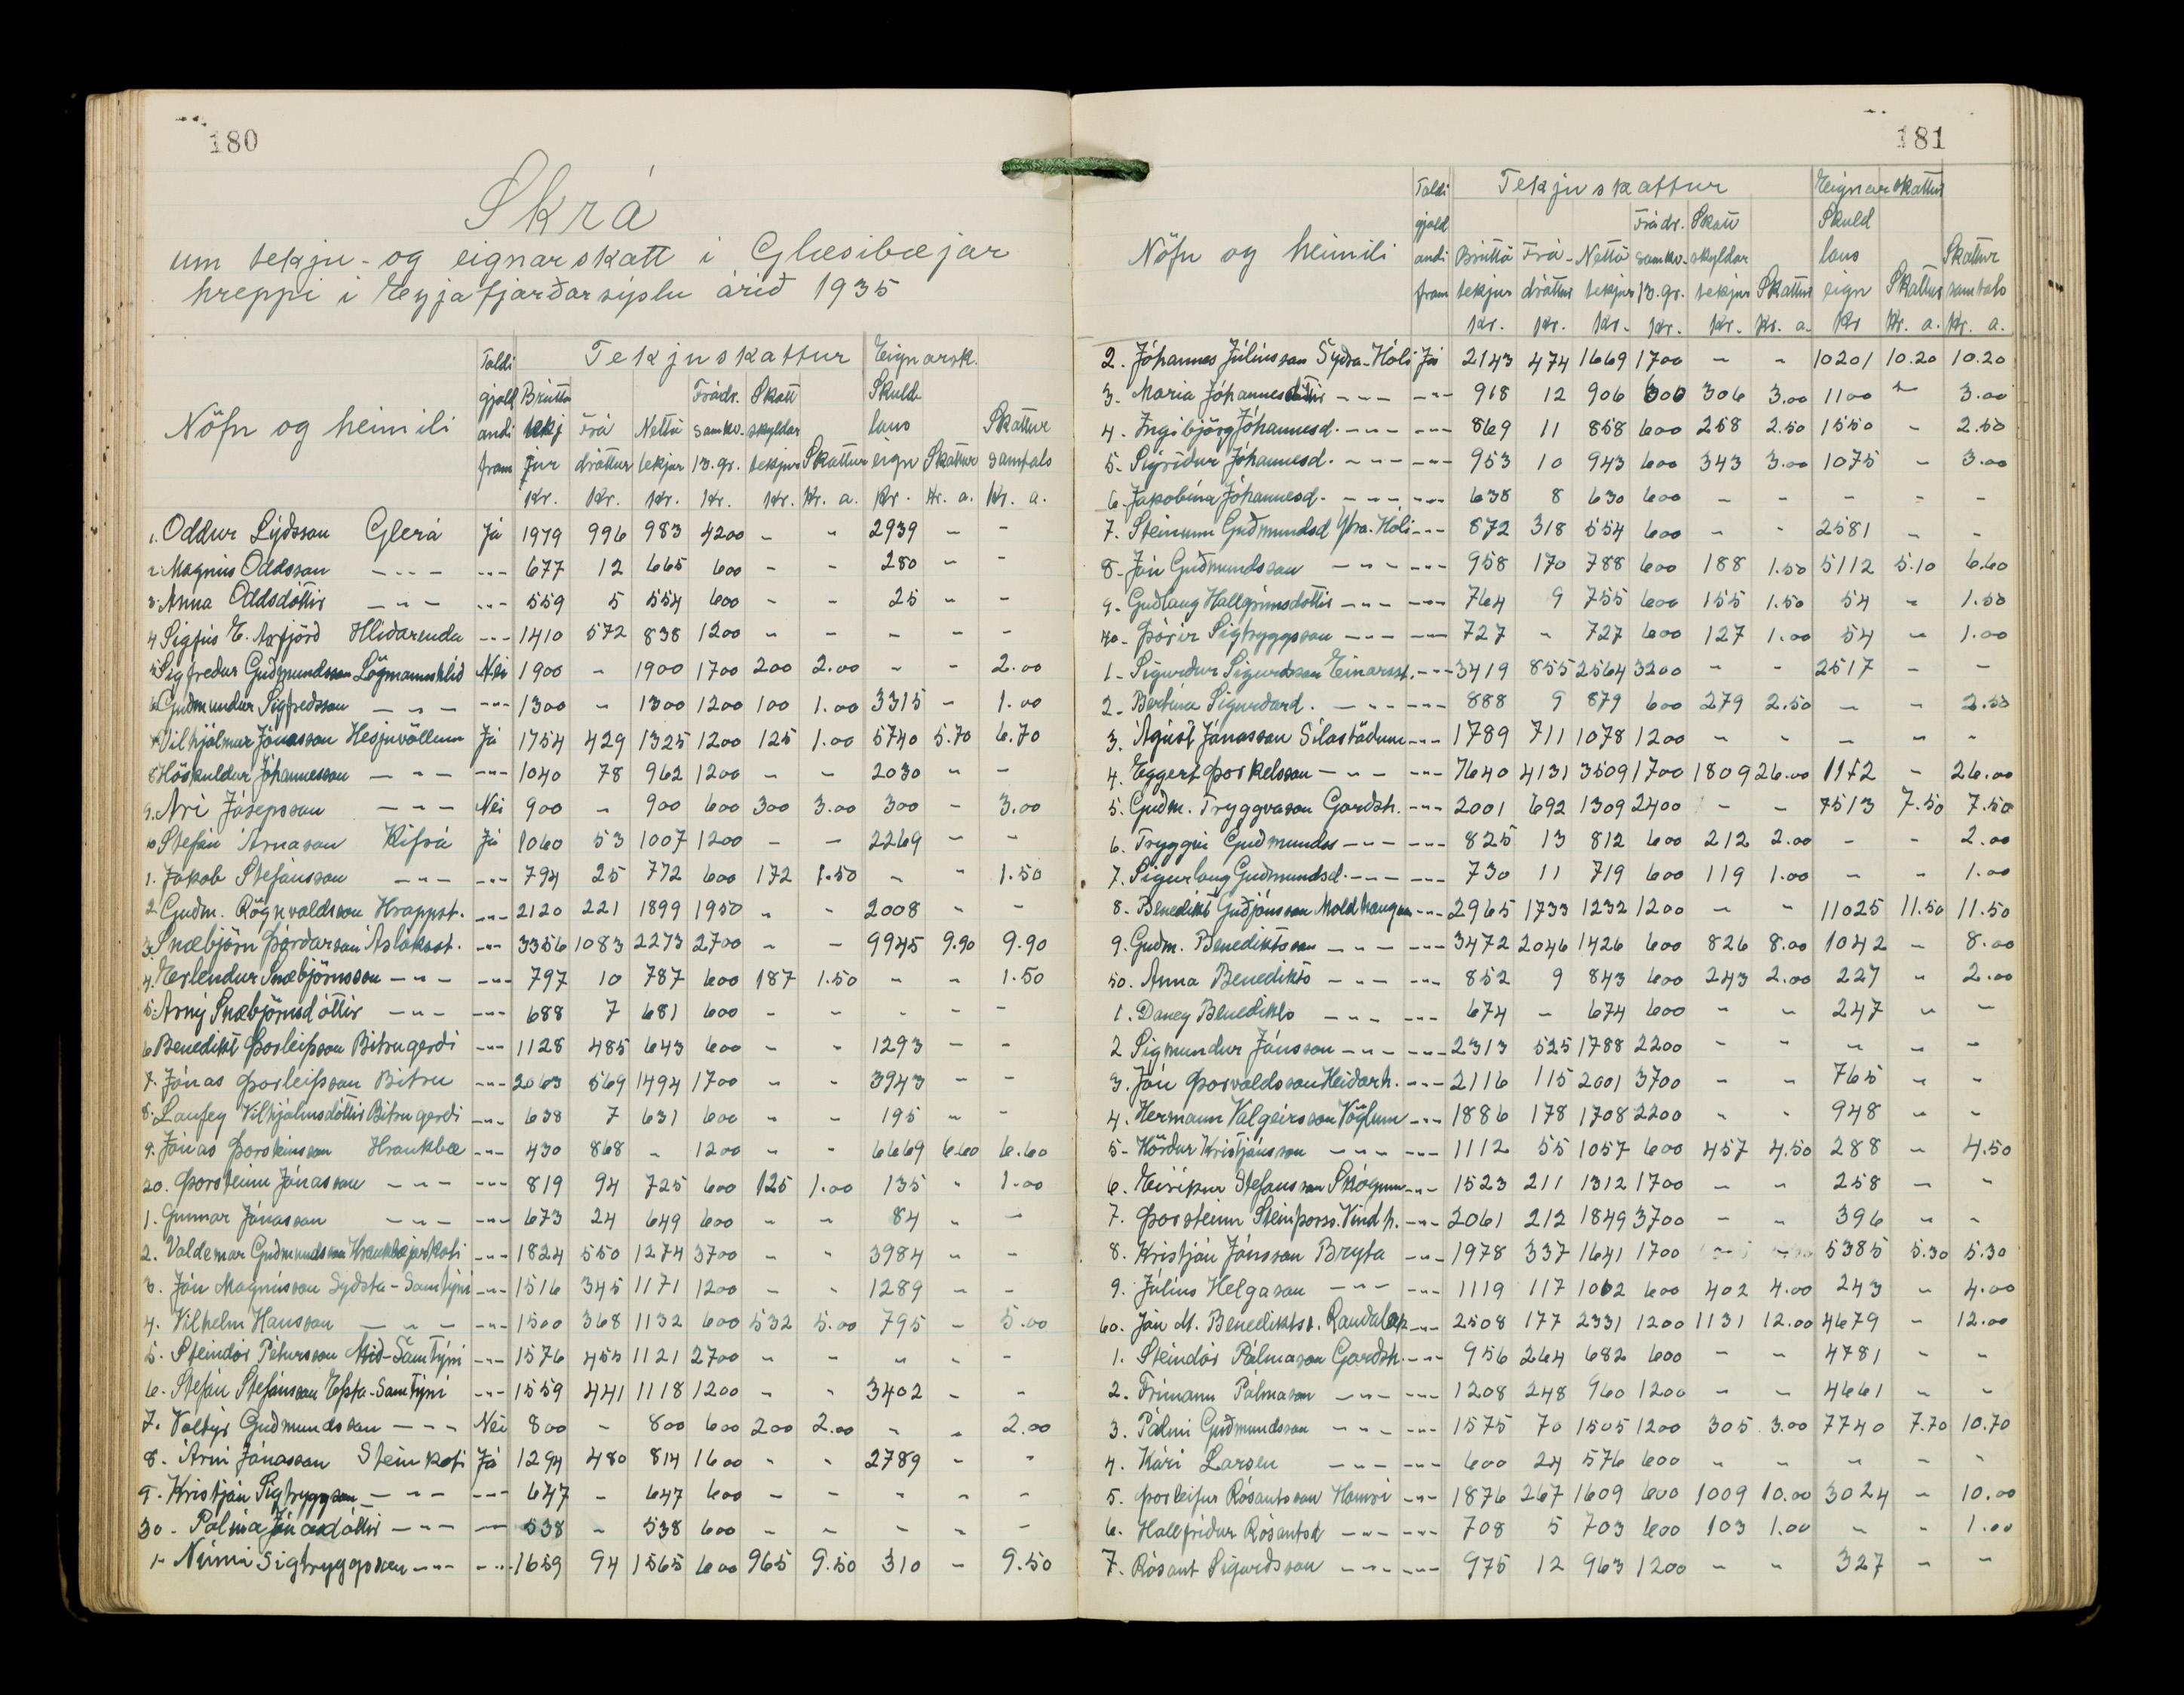 180
Skrá
um tekju- og eignarskatt í Glæsibæjar
hreppi í Eyjafjarðarsýslu árið 1935
Nöfn og heimili Taldi gjald andi fram Tekjuskattur Eignarsk.
Bruttó tekjur Kr. Frádráttur Kr. Nettó tekjur Kr. Frádr. samkv. 13. gr. Kr. Skattskyldar tekjur Kr. Skattur Kr. a. Skuldlaus eign Kr. Skattur Kr. a. Skattur samtals Kr. a.
1. Oddur Lýðsson Glerá Já 1979 996 983 4200 - - 2939 - -
2. Magnús Oddsson -"- -"- 677 12 665 600 - - 280 - -
3. Anna Oddsdóttir -"- -"- 559 5 554 600 - - 25 - -
4 Sigfús E. Axfjörð Hlíðarenda -"- 1410 572 838 1200 - - - - -
5 Sigfreður Guðmundsson Lögmannshlíð Nei 1900 - 1900 1700 200 2.00 - - 2.00
6 Guðmundur Sigfreðsson -"- -"- 1300 - 1300 1200 100 1.00 3315 - 1.00
7 Vilhjálmur Jónasson Hesjuvöllum Já 1754 429 1325 1200 125 1.00 5740 5.70 6.70
8 Höskuldur Jóhannesson -"- -"- 1040 78 962 1200 - - 2030 - -
9. Ari Jósepsson -"- Nei 900 - 900 600 300 3.00 300 - 3.00
10 Stefán Árnason Kífsá Já 1060 53 1007 1200 - - 2269 - -
1. Jakob Stefánsson -"- -"- 794 25 772 600 172 1.50 - - 1.50
2 Guðm. Rögnvaldsson Hrappst. -"- 2120 221 1899 1950 - - 2008 - -
3. Snæbjörn Þórðarson Ásláksst. -"- 3356 1083 2273 2700 - - 9945 9.90 9.90
4. Erlendur Snæbjörnsson -"- -"- 797 10 787 600 187 1.50 - - 1.50
5. Árný Snæbjörnsdóttir -"- -"- 688 7 681 600 - - - - -
6 Benedikt Þorleifsson Bitrugerði -"- 1128 485 643 600 - - 1293 - -
7. Jónas Þorleifsson Bitru -"- 2063 569 1494 1700 - - 3943 - -
8. Laufey Vilhjálmsdóttir Bitrugerði -"- 638 7 631 600 - - 195 - -
9. Jónas Þorsteinsson Hraukbæ -"- 430 868 - 1200 - - 6669 6.60 6.60
20. Þorsteinn Jónasson -"- -"- 819 94 725 600 125 1.00 135 - 1.00
1. Gunnar Jónasson -"- -"- 673 24 649 600 - - 84 - -
2. Valdemar Guðmundsson Hraukbæjarkoti -"- 1824 550 1274 3700 - - 3984 - -
3. Jón Magnússon Syðsta-Samtýni -"- 1516 345 1171 1200 - - 1289 - -
4. Vilhelm Hansson -"- -"- 1500 368 1132 600 532 5.00 795 - 5.00
5. Steindór Pétursson Mið-Samtýni -"- 1576 455 1121 2700 - - - - -
6. Stefán Stefánsson Efsta-Samtýni -"- 1559 441 1118 1200 - - 3402 - -
7. Valtýr Guðmundsson -"- Nei 800 - 800 600 200 2.00 - - 2.00
8. Árni Jónasson Steinkoti Já 1294 480 814 1600 - - 2789 - -
9. Kristján Sigtryggsson -"- -"- 647 - 647 600 - - - - -
30. Pálína Jónasdóttir -"- -"- 538 - 538 600 - - - - -
1. Númi Sigtryggsson -"- -"- 1659 94 1565 600 965 9.50 310 - 9.50
181
Nöfn og heimili Taldi gjald andi fram Tekjuskattur Eignarskattur
Bruttó tekjur Kr. Frádráttur Kr. Nettó tekjur Kr. Frádr. samkv. 13. gr. Kr. Skattskyldar tekjur Kr. Skattur Kr. a. Skuldlaus eign Kr Skattur Kr. a. Skattur samtals Kr. a.
2. Jóhannes Júlíusson Syðra-Hóli Já 2143 474 1669 1700 - - 10201 10.20 10.20
3. María Jóhannesdóttir -"- -"- 918 12 906 600 306 3.00 1100 - 3.00
4. Ingibjörg Jóhannesd. -"- -"- 869 11 858 600 258 2.50 1550 - 2.50
5. Sigríður Jóhannesd. -"- -"- 953 10 943 600 343 3.00 1075 - 3.00
6. Jakobína Jóhannesd. -"- -"- 638 8 630 600 - - - - -
7. Steinunn Guðmundsd Ytra-Hóli -"- 872 318 554 600 - - 2581 - -
8. Jón Guðmundsson -"- -"- 958 170 788 600 188 1.50 5112 5.10 6.60
9. Guðlaug Hallgrímsdóttir -"- -"- 764 9 755 600 155 1.50 54 - 1.50
40. Þórir Sigtryggsson -"- -"- 727 - 727 600 127 1.00 54 - 1.00
1. Sigurður Sigurðsson Einarsst. -"- 3419 855 2564 3200 - - 2517 - -
2. Bertína Sigurðard. -"- -"- 888 9 879 600 279 2.50 - - 2.50
3. Ágúst Jónasson Sílastöðum -"- 1789 711 1078 1200 - - - - -
4. Eggert Þorkelsson -"- -"- 7640 4131 3509 1700 1809 26.00 1172 - 26.00
5. Guðm. Tryggvason Garðsh. -"- 2001 692 1309 2400 - - 7513 7.50 7.50
6. Tryggvi Guðmundss -"- -"- 825 13 812 600 212 2.00 - - 2.00
7. Sigurlaug Guðmundsd. -"- -"- 730 11 719 600 119 1.00 - - 1.00
8. Benedikt Guðjónsson Moldhaugum -"- 2965 1733 1232 1200 - - 11025 11.50 11.50
9. Guðm. Benediktsson -"- -"- 3472 2046 1426 600 826 8.00 1042 - 8.00
50. Anna Benedikts -"- -"- 852 9 843 600 243 2.00 227 - 2.00
1. Daney Benedikts -"- -"- 674 - 674 600 - - 247 - -
2 Sigmundur Jónsson -"- -"- 2313 525 1788 2200 - - - - -
3. Jón Þorvaldsson Heiðarh. -"- 2116 115 2001 3700 - - 765 - -
4. Hermann Valgeirsson Vöglum -"- 1886 178 1708 2200 - - 948 - -
5. Hörður Kristjánsson -"- -"- 1112 55 1057 600 457 4.50 288 - 4.50
6. Eiríkur Stefánsson Skógum -"- 1523 211 1312 1700 - - 258 - -
7. Þorsteinn Steinþorss. Vindh. -"- 2061 212 1849 3700 - - 396 - -
8. Kristján Jónsson Bryta -"- 1978 337 1641 1700 - - 5385 5.30 5.30
9. Júlíus Helgason -"- -"- 1119 117 1002 600 402 4.00 243 - 4.00
60. Jón M. Benediktss. -"- 2508 177 2331 1200 1131 12.00 4679 - 12.00
1. Steindór Pálmason Garðsh. -"- 956 264 682 600 - - 4781 - -
2. Frímann Pálmason -"- -"- 1208 248 960 1200 - - 4661 - -
3. Pálmi Guðmundsson -"- -"- 1575 70 1505 1200 305 3.00 7740 7.70 10.70
4. Kári Larsen -"- -"- 600 24 576 600 - - - - -
5. Þorleifur Rósantsson Hamri -"- 1876 267 1609 600 1009 10.00 3024 - 10.00
6. Hallfríður Rósantsd -"- -"- 708 5 703 600 103 1.00 - - 1.00
7. Rósant Sigurðsson -"- -"- 975 12 963 1200 - - 327 - -